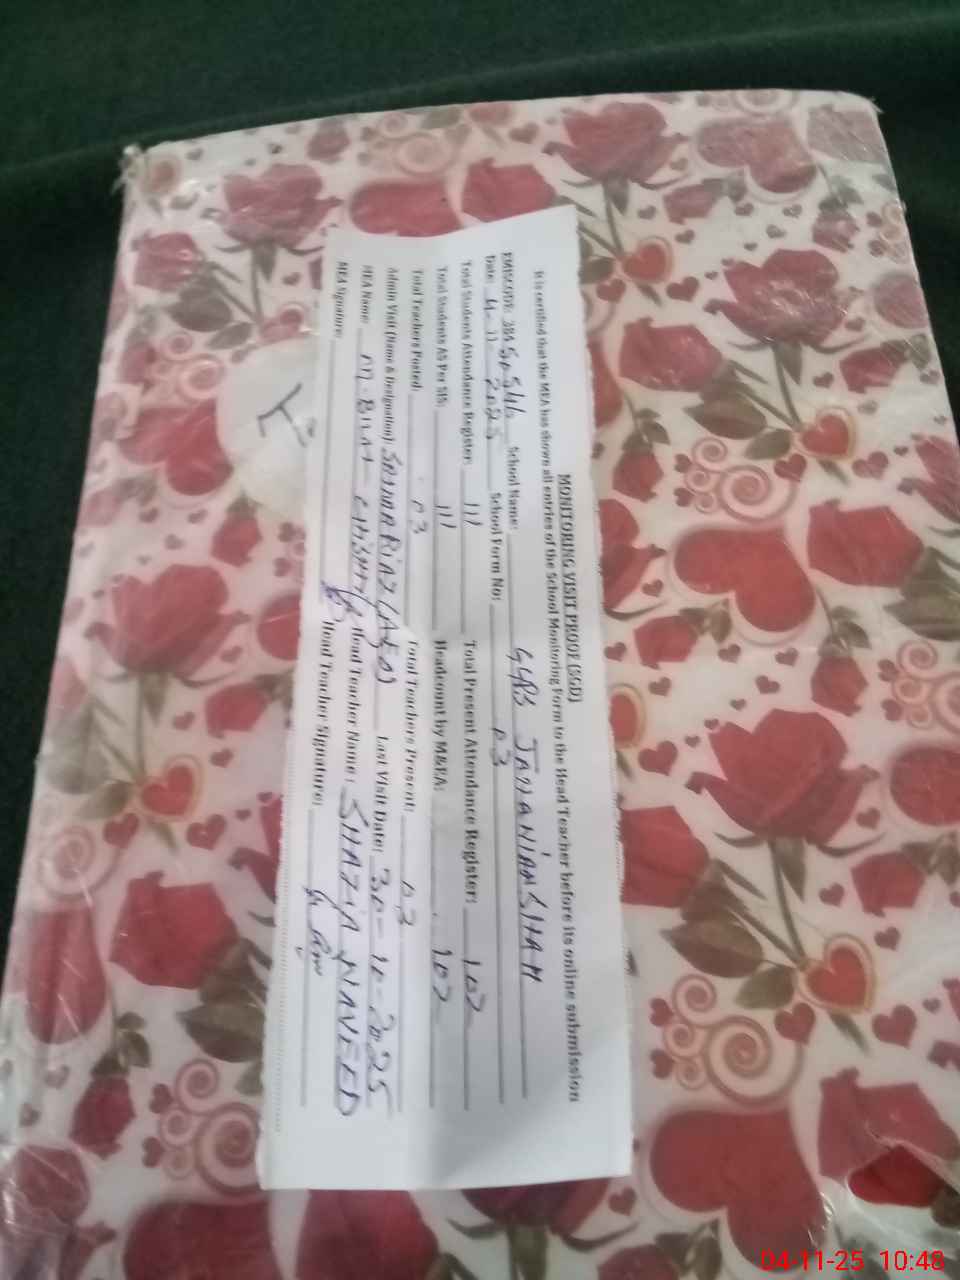 MONITORING VISIT PROOF (SGD)
It is certified that the MEA has shown all entries of the School Monitoring Form to the Head Teacher before its online submission
EMISCODE: 38450546 School Name: GGPS JASSANIANSHAH
Date: 4-11-2025 School Form No: 03
Total Students Attendance Register: 111 Total Present Attendance Register: 102
Total Students AS Per SIS: 111 Headcount by M&EA: 102
Total Teachers Posted: 03 Total Teachers Present: 03
Admin Visit (Name & Designation) RIAZ (AEO) Last Visit Date: 30-10-2025
MEA Name: M. BILAL Head Teacher Name: SHAZIA NAVEED
MEA Signature: Head Teacher Signature:
04-11-25 10:48